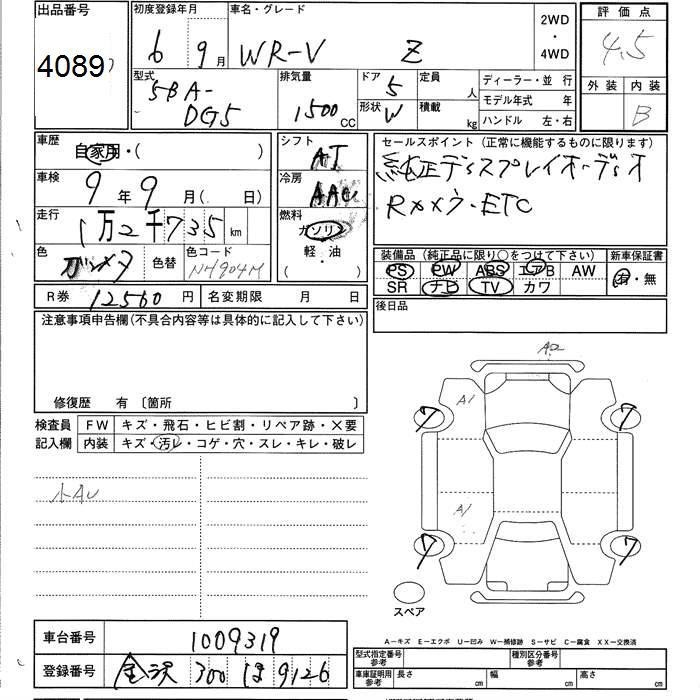 出品番号
4089
初度登録年月
6 9月
車名・グレード
WR-V Z
2WD
・
4WD
評価点
4.5
外装 内装
B
型式
5BA-
DG5
排気量
1500 CC
ドア 5
形状 W
定員 人
積載 kg
ディーラー・並行
モデル年式 年
ハンドル 左・右
車歴
自家用・( )
車検
9年9月( 日)
走行
1万2千735 km
色
ガンメタ
色替
色コード
NH904M
シフト
AT
冷房
AAC
燃料
ガソリン
軽・油
( )
セールスポイント(正常に機能するものに限ります)
純正ディスプレイオーディオ
Rカメラ・ETC
装備品(純正品に限り○をつけて下さい)
PS PW ABS エアB AW
SR ナビ TV カワ
新車保証書
有・無
R券 12560円
名変期限 月 日
後日品
注意事項申告欄(不具合内容等は具体的に記入して下さい)
修復歴 有 〔箇所 〕
検査員
記入欄
FW キズ・飛石・ヒビ割・リペア跡・X要
内装 キズ・汚レ・コゲ・穴・スレ・キレ・破レ
小AU
A2
A1
7 7
A1
7 7
スペア
A－キズ E－エクボ U－凹み W－補修跡 S－サビ C－腐食 XX－交換済
車台番号 1009319
登録番号 金沢 300 ほ 9126
型式指定番号
参考
種別区分番号
参考
車庫証明用
参考
長さ cm 幅 cm 高さ cm